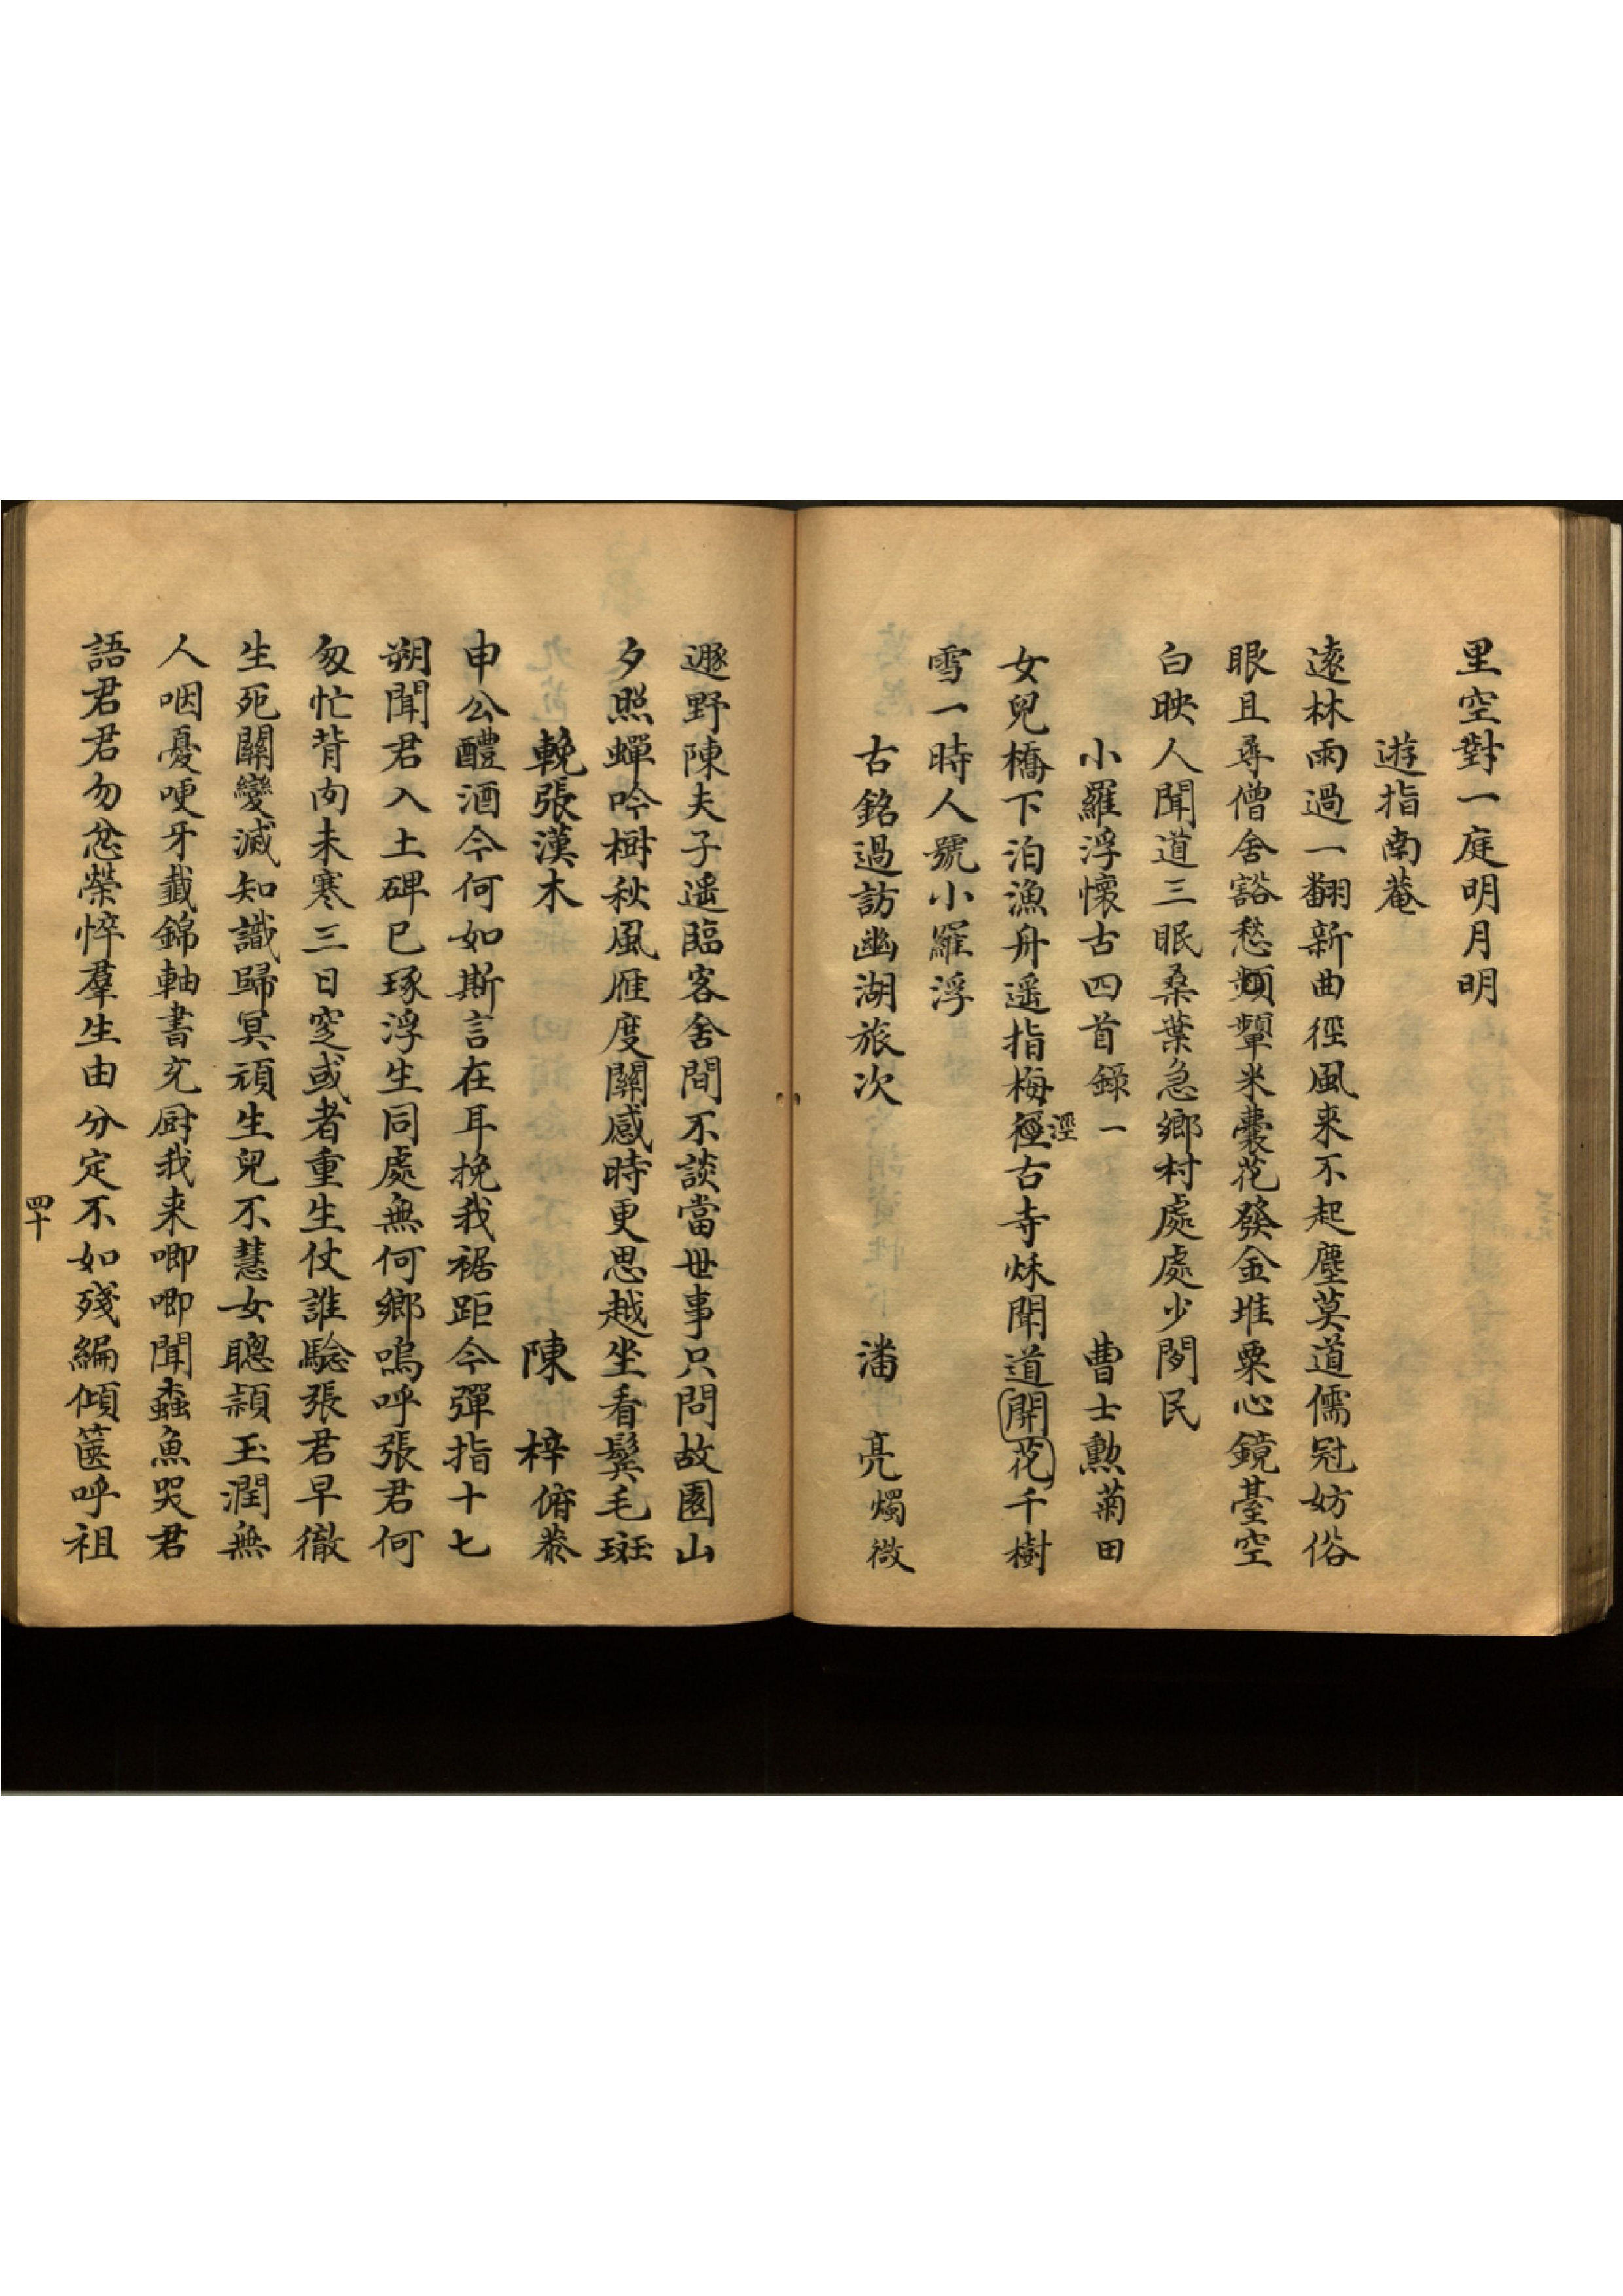 里空對一庭明月明
遊指南菴
遠林雨過一翻新曲徑風来不起塵莫道儒冠妨俗
眼且尋僧舍豁愁顰米囊花發金堆粟心鏡臺空
白映人聞道三眠桑葉急鄉村處處少閒民
小羅浮懷古四首錄一 曹士勲菊田
女兒橋下泊漁舟遥指梅徑古寺秌聞道開花千樹
涇
雪一時人號小羅浮
古銘過訪幽湖旅次 潘 亮燭微
遯野陳夫子遥臨客舍間不談當世事只問故園山
夕照蟬吟樹秋風雁度關感時更思越坐看鬓毛斑
輓張漢木 陳 梓俯恭
申公醴酒今何如斯言在耳挽我裾距今彈指十七
朔聞君入土碑已琢浮生同處無何鄉嗚呼張君何
匆忙背肉未寒三日窆或者重生仗誰騐張君早徹
生死關變滅知識歸冥頑生兒不慧女聰穎玉潤無
人咽憂哽牙籖錦軸書充厨我来唧唧聞蟲魚哭君
語君君勿忿榮悴羣生由分定不如殘編傾篋呼祖
四十